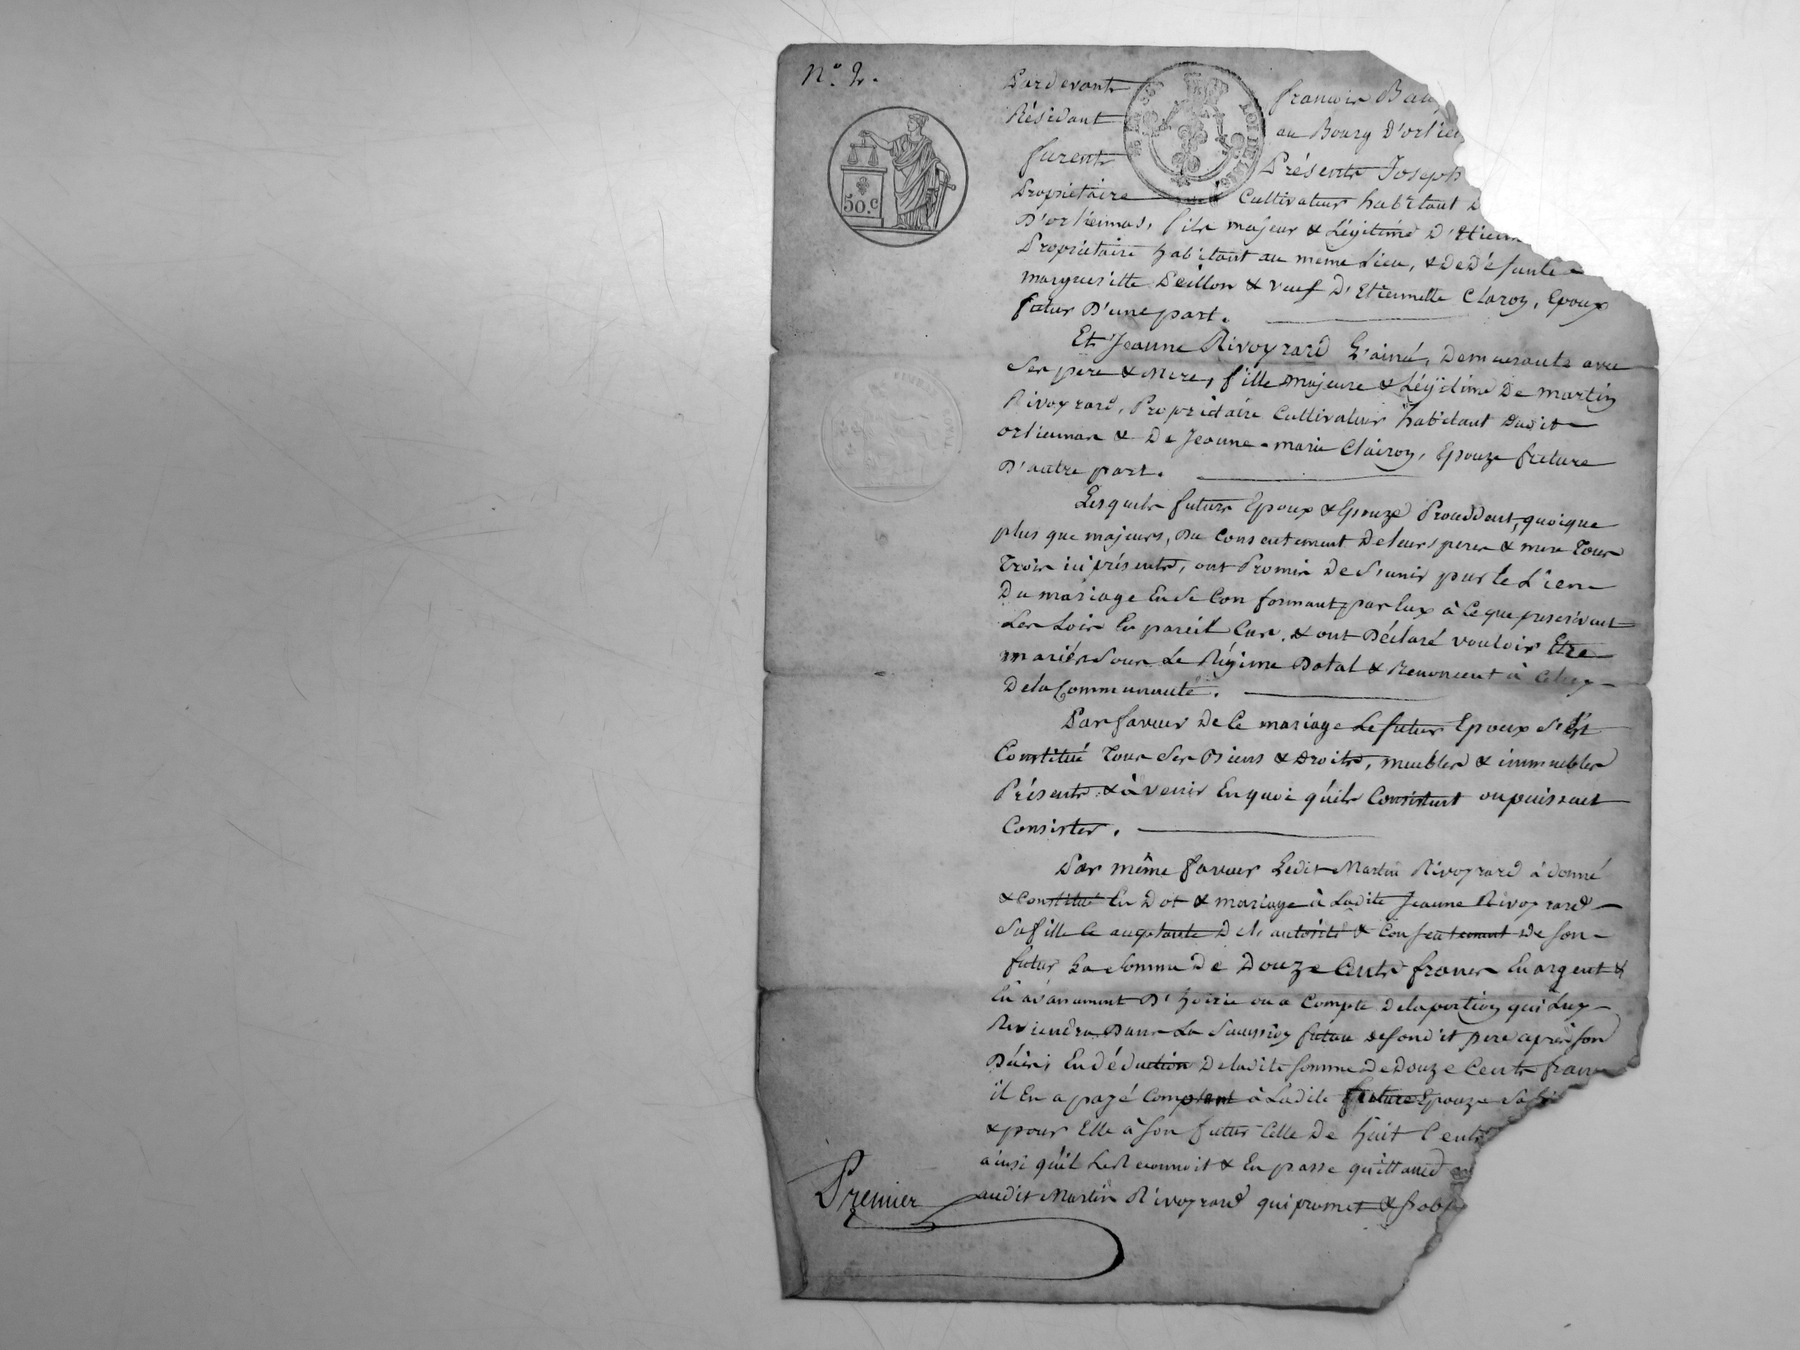 N.o 2.
Pardevant françois
Résidant au Bourg D'orlié
furent Présents Joseph
Propriétaire Cultivateur habitant D
D'orliénas, fils majeur & Légitime D'Etienn
Propriétaire habitant au même Lieu, & De Défunte
margueritte Peillon & veuf D'Etiennette Claron, Epoux
futur D'une part.
Et Jeanne Rivoyrard L'ainé, Demeurante avec
Ses pere & Mere, fille Majeure & Légitime De martin
Rivoyrard, Propriétaire Cultivateur habitant Dudit
orlienas & De Jeanne-marie Clairon, Epouze future
D'autre part.
Lesquels futurs Epoux & Epouze Procédant, quoique
plus que majeurs, Du Consentement De leurs peres & mere Tous
Trois ici présents, ont Promis De S'unir par le Lien
Du mariage En Se Conformant par Eux à Ce que prescrivent
Les Loix En pareil Cas. & ont Déclaré vouloir Etre
mariés Sous Le Régime Dotal & Renoncent à Celuy
De la Communauté.
Par faveur De Ce mariage Le futur Epoux S'Est
Constitué Tous Ses Biens & Droits, meubles & immeubles
Présents & à venir En quoi qu'ils Consistent ou puissent
Consister.
Par même faveur Ledit Martin Rivoyrard à donné
& Constitué En Dot & mariage à Ladite Jeanne Rivoyrard
Sa fille Ce acceptante De l'autorité & Consentement De Son
futur La Somme De Douze Cents francs En argent &
En avancement D'hoirie ou a Compte De la portion qui Luy
Reviendra Dans La Succession future de Sondit pere après Son
Décès, En déduction De ladite Somme De Douze Cents francs
il En a payé Comptant à Ladite future Epouze Sa fi
& pour Elle à Son futur Celle De huit Cents
ainsi qu'il Le Reconnoit & En passe quittance
audit Martin Rivoyrard qui promet & S'obl
Premier
50.c